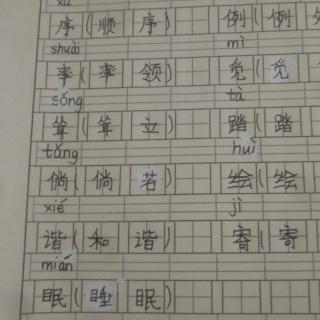 xù
序(顺序) 例(例
shuài mì
率(率领) 觅(觅
sǒng tà
耸(耸立) 踏(踏
tǎng huì
倘(倘若) 绘(绘
xié jì
谐(和谐) 寄(寄
mián
眠(睡眠)